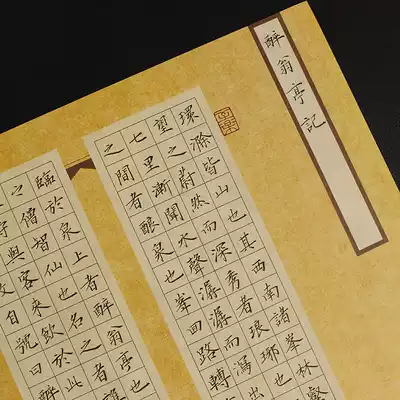 醉翁亭記
環滁皆山也其西南諸峯林壑
望之蔚然而深秀者琅琊也
七里漸聞水聲潺潺而瀉出
之間者釀泉也峯回路轉
臨於泉上者醉翁亭也
之僧智仙也名之者誰
守與客來飲於此
自號曰醉